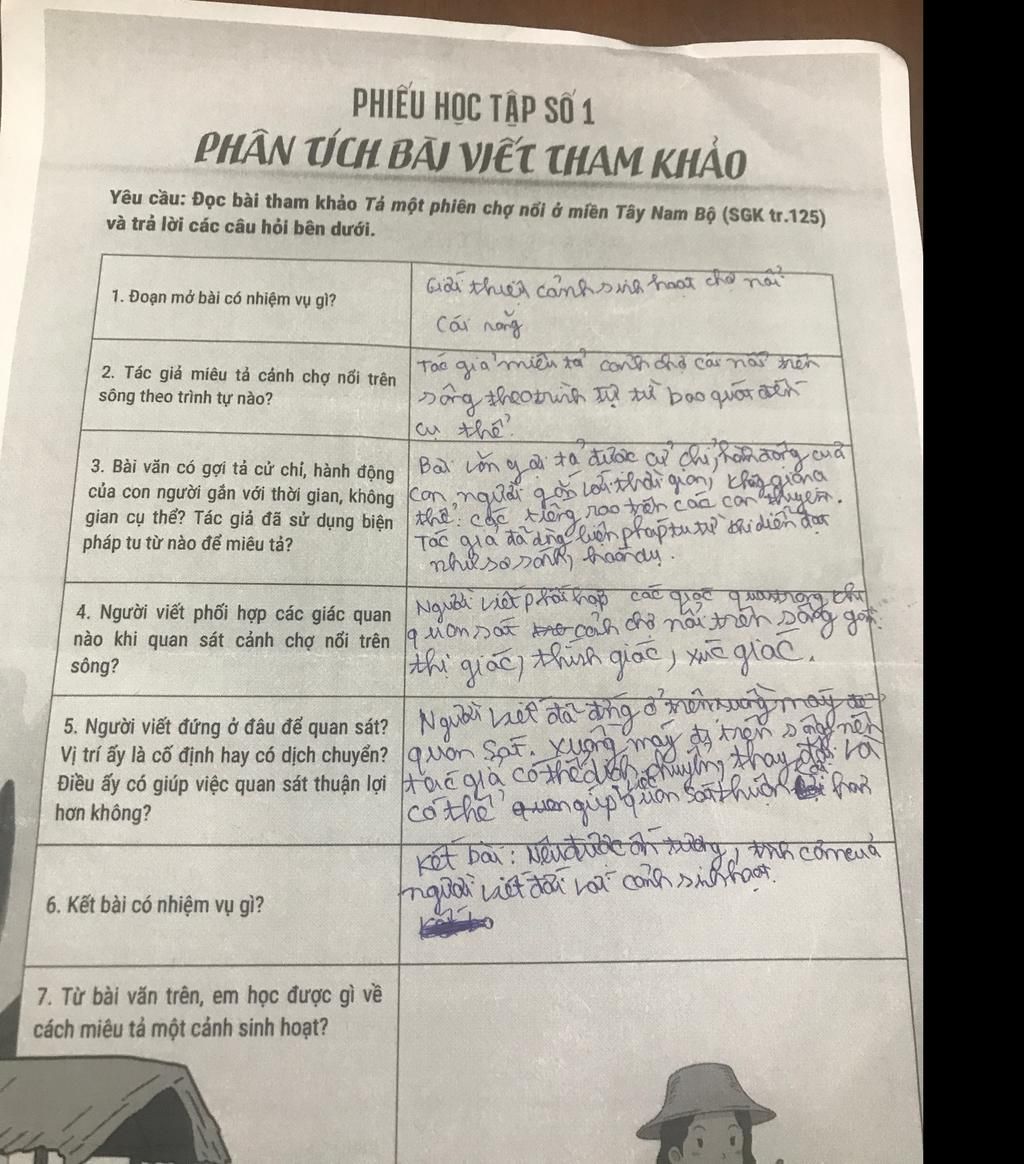 PHIẾU HỌC TẬP SỐ 1
PHÂN TÍCH BÀI VIẾT THAM KHẢO
Yêu cầu: Đọc bài tham khảo Tả một phiên chợ nổi ở miền Tây Nam Bộ (SGK tr.125)
và trả lời các câu hỏi bên dưới.
1. Đoạn mở bài có nhiệm vụ gì?
Giới thiệu cảnh sinh hoạt chợ nổi
Cái răng
2. Tác giả miêu tả cảnh chợ nổi trên
sông theo trình tự nào?
Tác giả miêu tả cảnh chợ cái nổi trên
sông theo trình tự từ bao quát đến
cụ thể.
3. Bài văn có gợi tả cử chỉ, hành động
của con người gắn với thời gian, không
gian cụ thể? Tác giả đã sử dụng biện
pháp tu từ nào để miêu tả?
Bài văn gợi tả được cử chỉ, hành động của
con người gắn với thời gian, không gian
thể: các tiếng rao trên các con thuyền.
Tác giả đã dùng biện pháp tu từ khi diễn đạt
như so sánh, hoán dụ.
4. Người viết phối hợp các giác quan
nào khi quan sát cảnh chợ nổi trên
sông?
Người viết phối hợp các giác quan trong khi
quan sát cảnh chợ nổi trên sông gồm:
thị giác, thính giác, xúc giác.
5. Người viết đứng ở đâu để quan sát?
Vị trí ấy là cố định hay có dịch chuyển?
Điều ấy có giúp việc quan sát thuận lợi
hơn không?
Người viết đã đứng ở trên xuồng máy để
quan sát. Xuồng máy đi trên sông nên
tác giả có thể dịch chuyển, thay đổi và
có thể giúp quan sát thuận lợi hơn
6. Kết bài có nhiệm vụ gì?
Kết bài: Nêu được ấn tượng, tình cảm của
người viết đối với cảnh sinh hoạt.
7. Từ bài văn trên, em học được gì về
cách miêu tả một cảnh sinh hoạt?